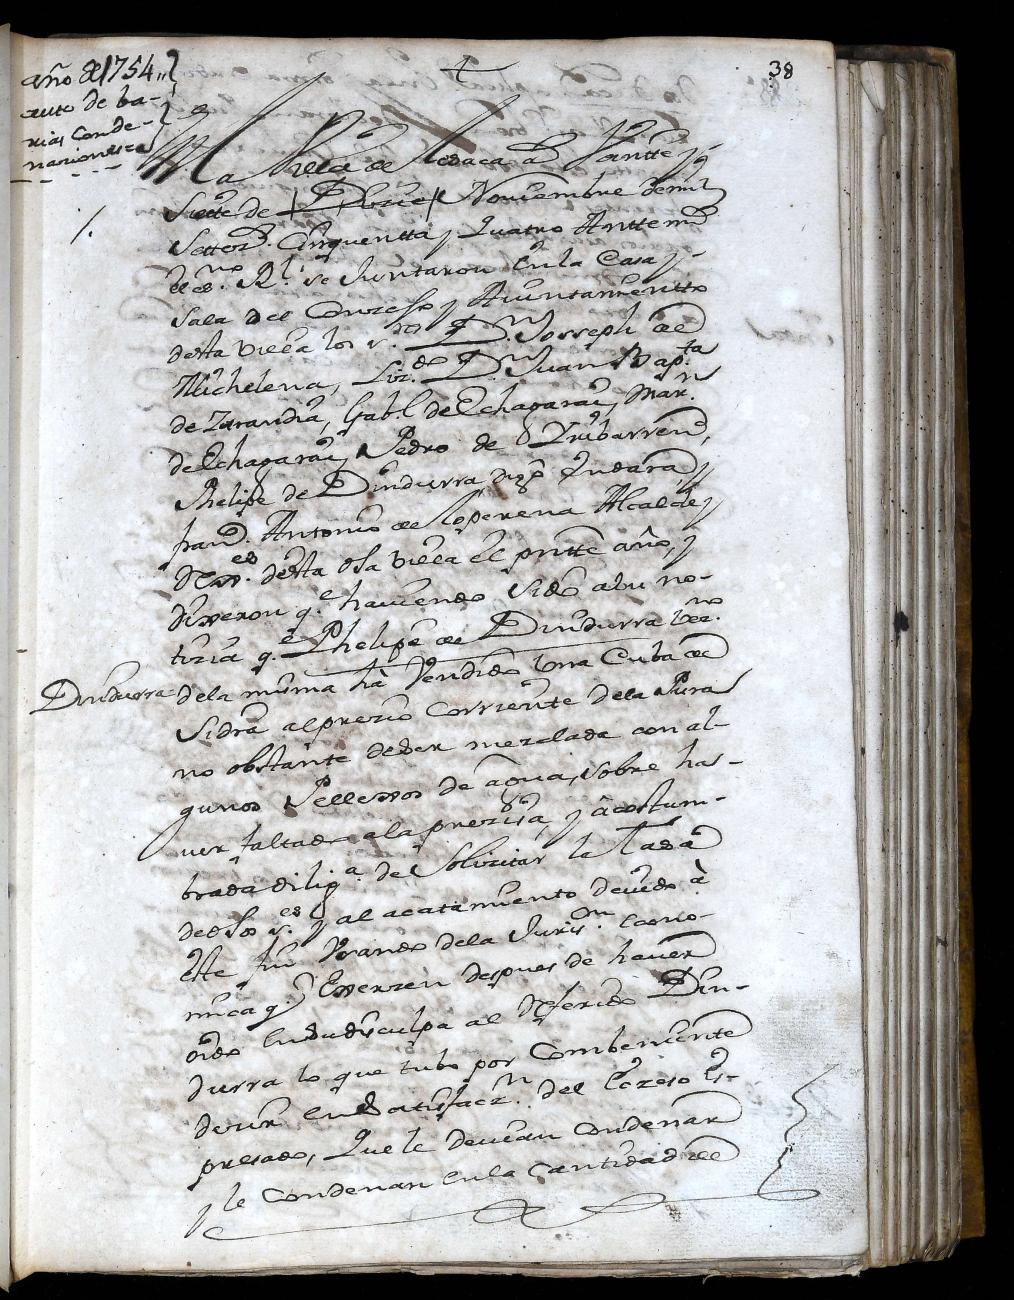 38
año de 1754,,
auto de ba-
rias conde-
naciones
1.
En la Villa de Lesaca a Veintte y
Siette de Dizre Noviembre de mil
Settezs. Cinquentta y Quatro Antte mi
el es.no Rl. se Juntaron en la Casa y
Sala del Conzejo y Aiuntamientto
desta villa los s.res D.n Josseph de
Michelena, Liz.do D.n Juan Bap.ta
de Zarandia, Gab.l de Echagarai, Mar.n
de Echagarai, Pedro de Yribarren,
Phelipe de Dindurra Yndara, y
fran.co Antonio de Loperena Alcalde y
Rex.es desta dha villa el pntte año, y
dixeron q.e haviendo sido a su no-
tizia q.e Phelipe de Dindurra vez.no
Dindurra
de la misma hà Vendido Una Cuba de
Sidra al prezio corriente de la Pura
no obstante de ser mezclada con al-
gunos Pellexos de agua, sobre ha-
ver faltado a la prezisa, y acostum-
brada dilig.a de Solizitar la Tasa
de dhos s.res y al acatamiento devido à
este fin Usando de la Juris.on Econo-
mica q.e Exerzen despues de haver
oido en su disculpa al Referido Din-
durra lo que tubo por Combeniente
dezir en satisfaz.n del Exzeso Es-
presado, Que le devian condenar
y le Condenan en la Cantidad de